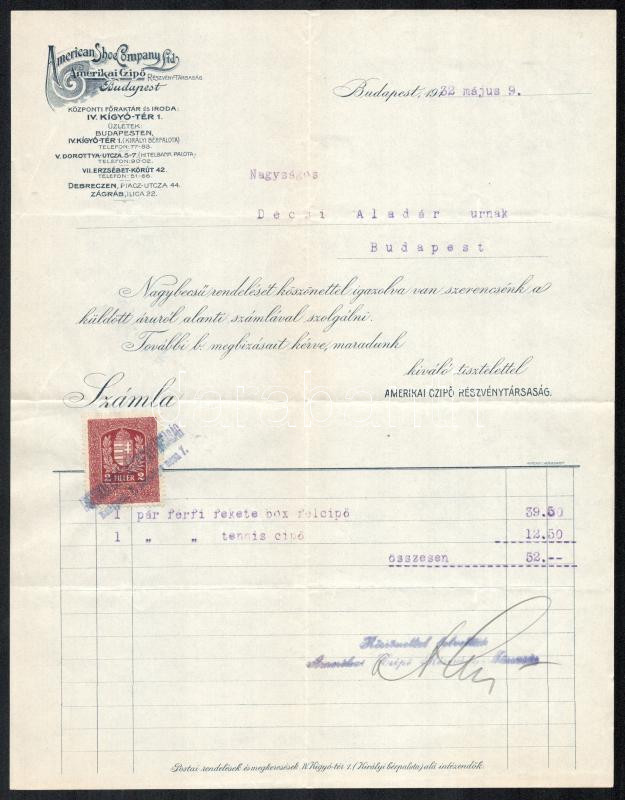 American Shoe Company Ltd.
Amerikai Czipő RÉSZVÉNYTÁRSASÁG
Budapest
KÖZPONTI FŐRAKTÁR ÉS IRODA:
IV. KÍGYÓ-TÉR 1.
ÜZLETEK:
BUDAPESTEN,
IV. KÍGYÓ-TÉR 1. (KIRÁLYI BÉRPALOTA)
TELEFON: 77-83.
V. DOROTTYA-UTCZA 5-7 (HITELBANK PALOTA)
TELEFON: 90-02.
VII. ERZSÉBET-KÖRÚT 42.
TELEFON: 51-66.
DEBRECZEN, PIACZ-UTCZA 44.
ZÁGRÁB, ILICA 22.
Budapest, 1932 május 9.
Nagyságos
Deczi Aladár urnak
Budapest
Nagybecsű rendelését köszönettel igazolva van szerencsénk a
küldött áruról alanti számlával szolgálni.
További b. megbizásait kérve, maradunk
kiváló tisztelettel
AMERIKAI CZIPŐ RÉSZVÉNYTÁRSASÁG.
Számla
2 FILLÉR 2
1 pár férfi fekete box félcipő 39.50
1 „ „ tennis cipő 12.50
összesen 52.--
Köszönettel felvettük
Amerikai Czipő
Postai rendelések és megkeresések IV. Kigyó-tér 1. (Királyi bérpalota) alá intézendők.